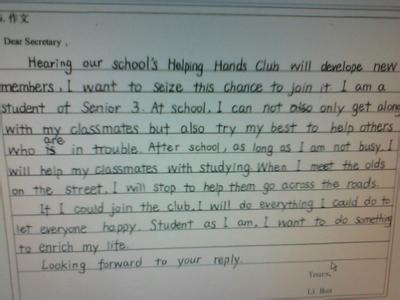 作文
Dear Secretary,
Hearing our school's Helping Hands Club will develope new
members, I want to seize this chance to join it. I am a
student of Senior 3. At school, I can not only get along
with my classmates but also try my best to help others
who are in trouble. After school, as long as I am not busy, I
will help my classmates with studying. When I meet the olds
on the street, I will stop to help them go across the roads.
If I could join the club, I will do everything I could do to
let everyone happy. Student as I am, I want to do something
to enrich my life.
Looking forward to your reply.
Yours,
Li Hua